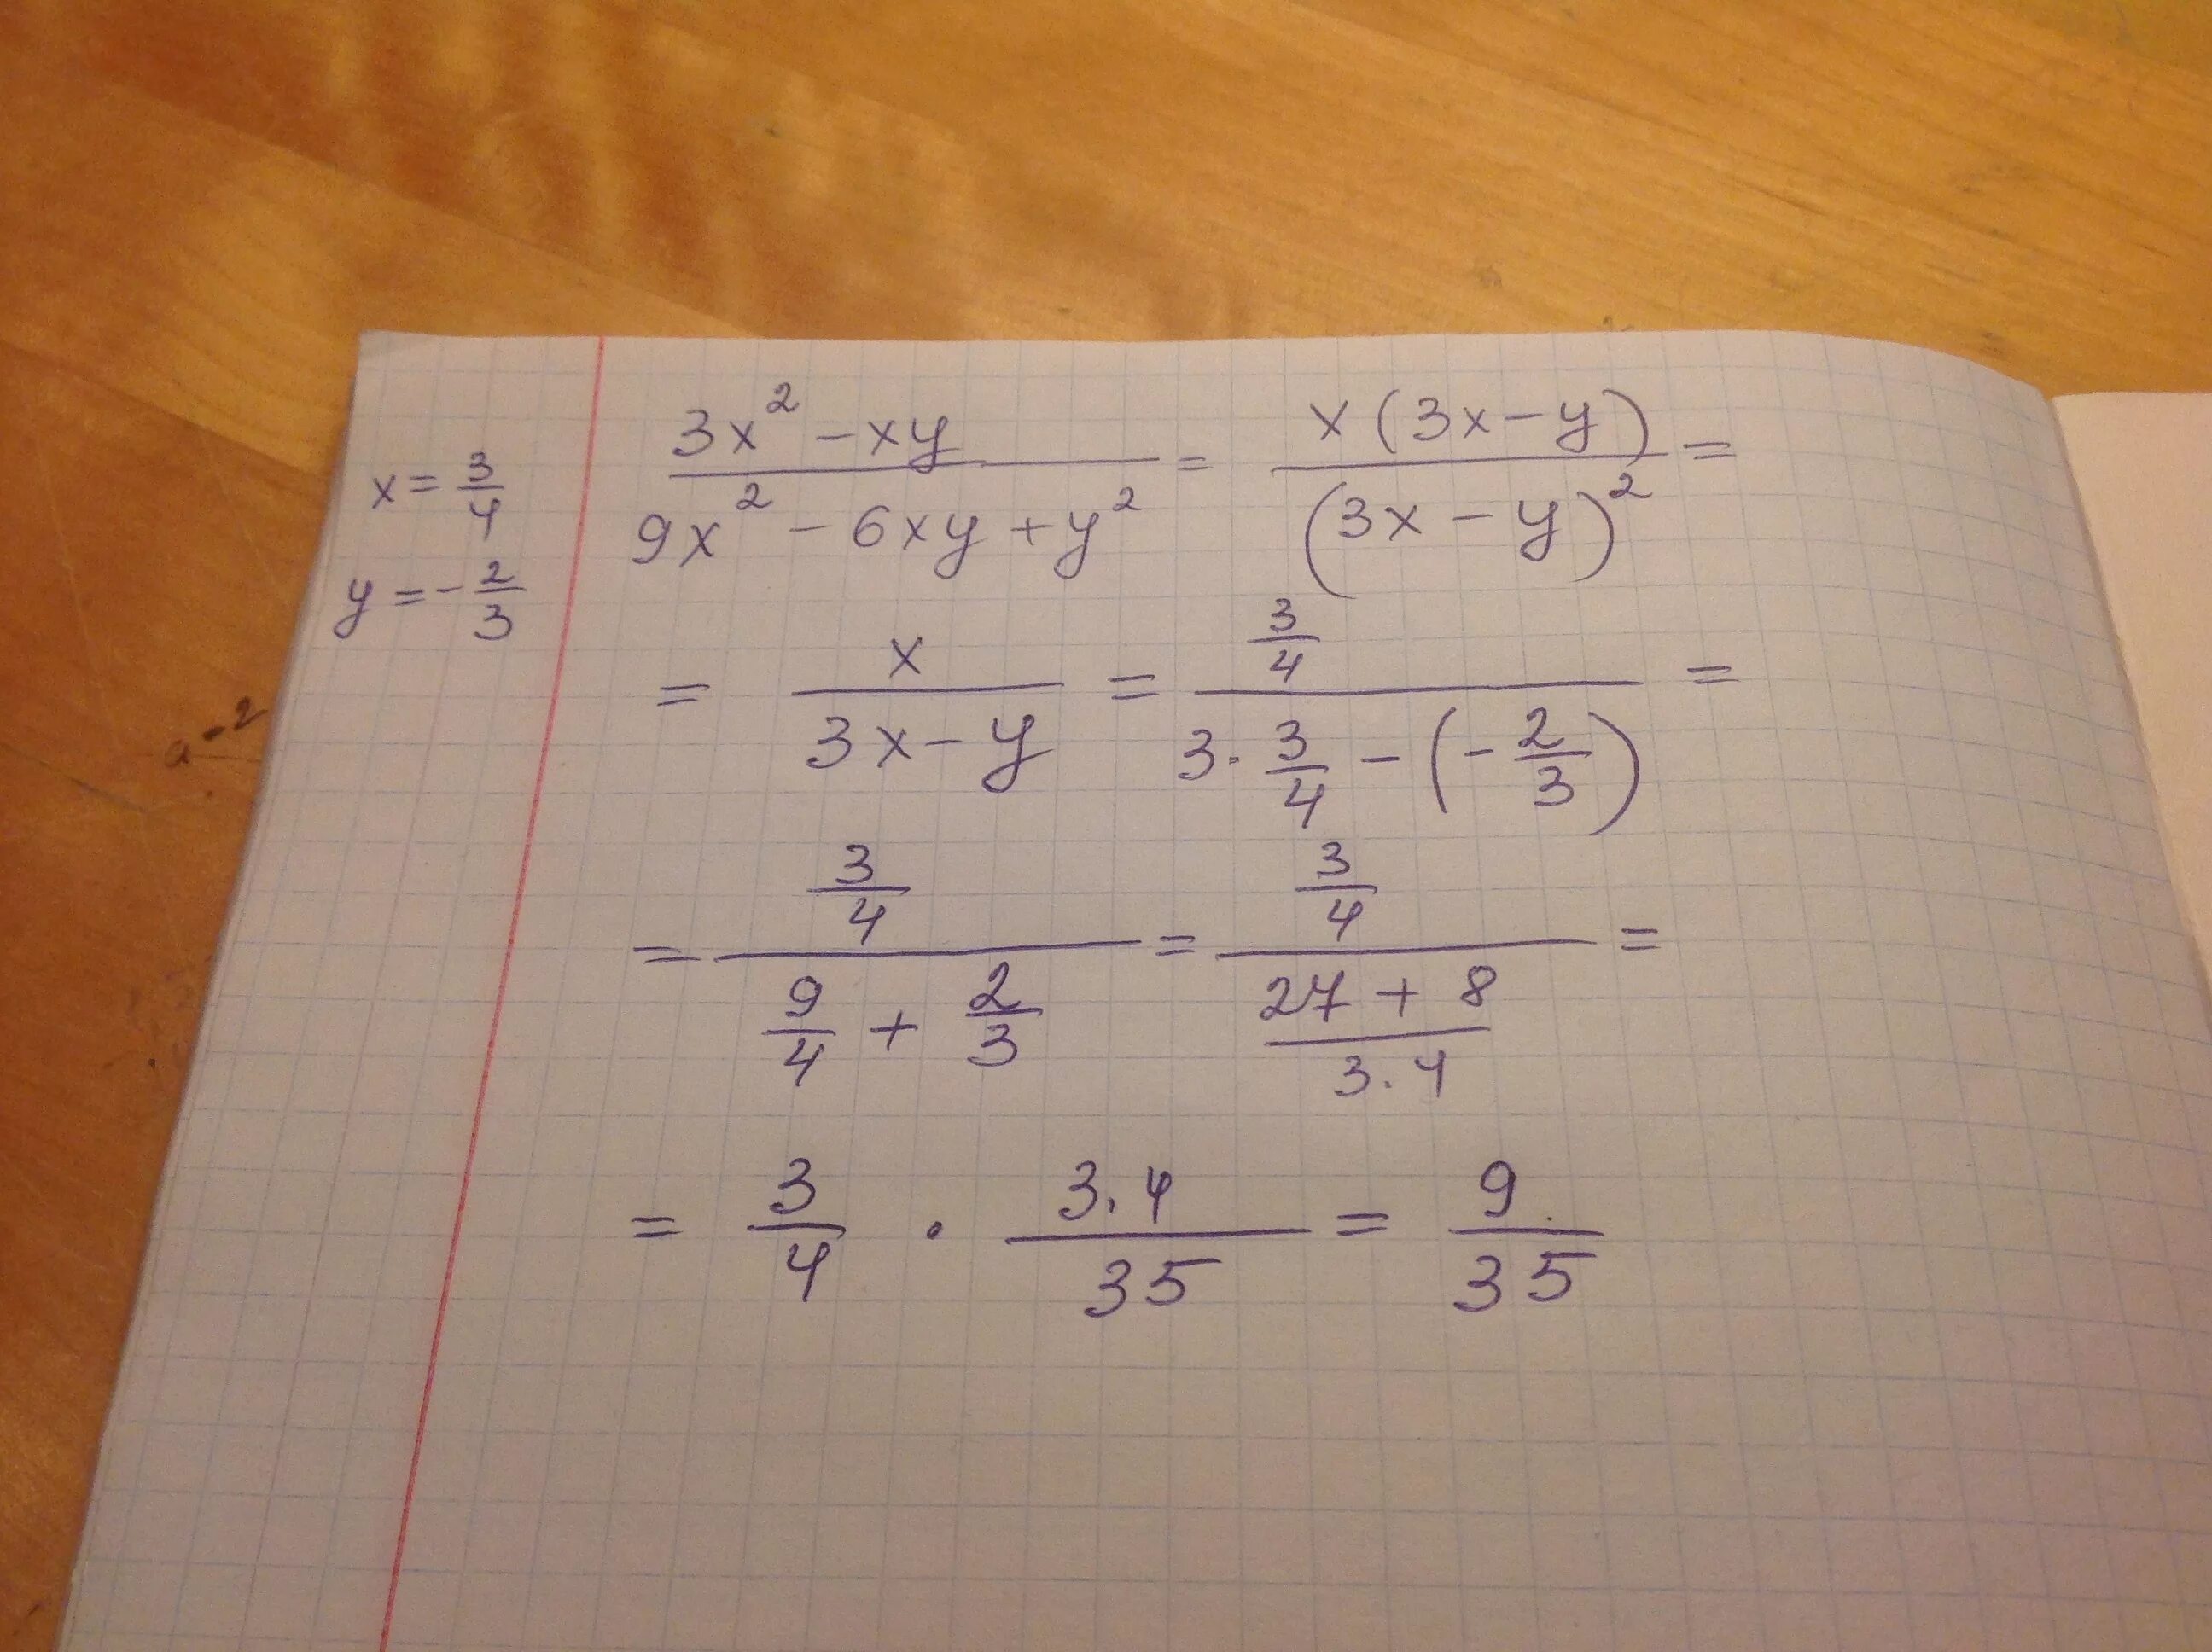 x = 3/4
y = -2/3
(3x² - xy)/(9x² - 6xy + y²) = x(3x - y)/(3x - y)² =
= x/(3x - y) = (3/4)/(3 · 3/4 - (-2/3)) =
= (3/4)/(9/4 + 2/3) = (3/4)/((27 + 8)/(3 · 4)) =
= 3/4 · (3 · 4)/35 = 9/35
a - 2